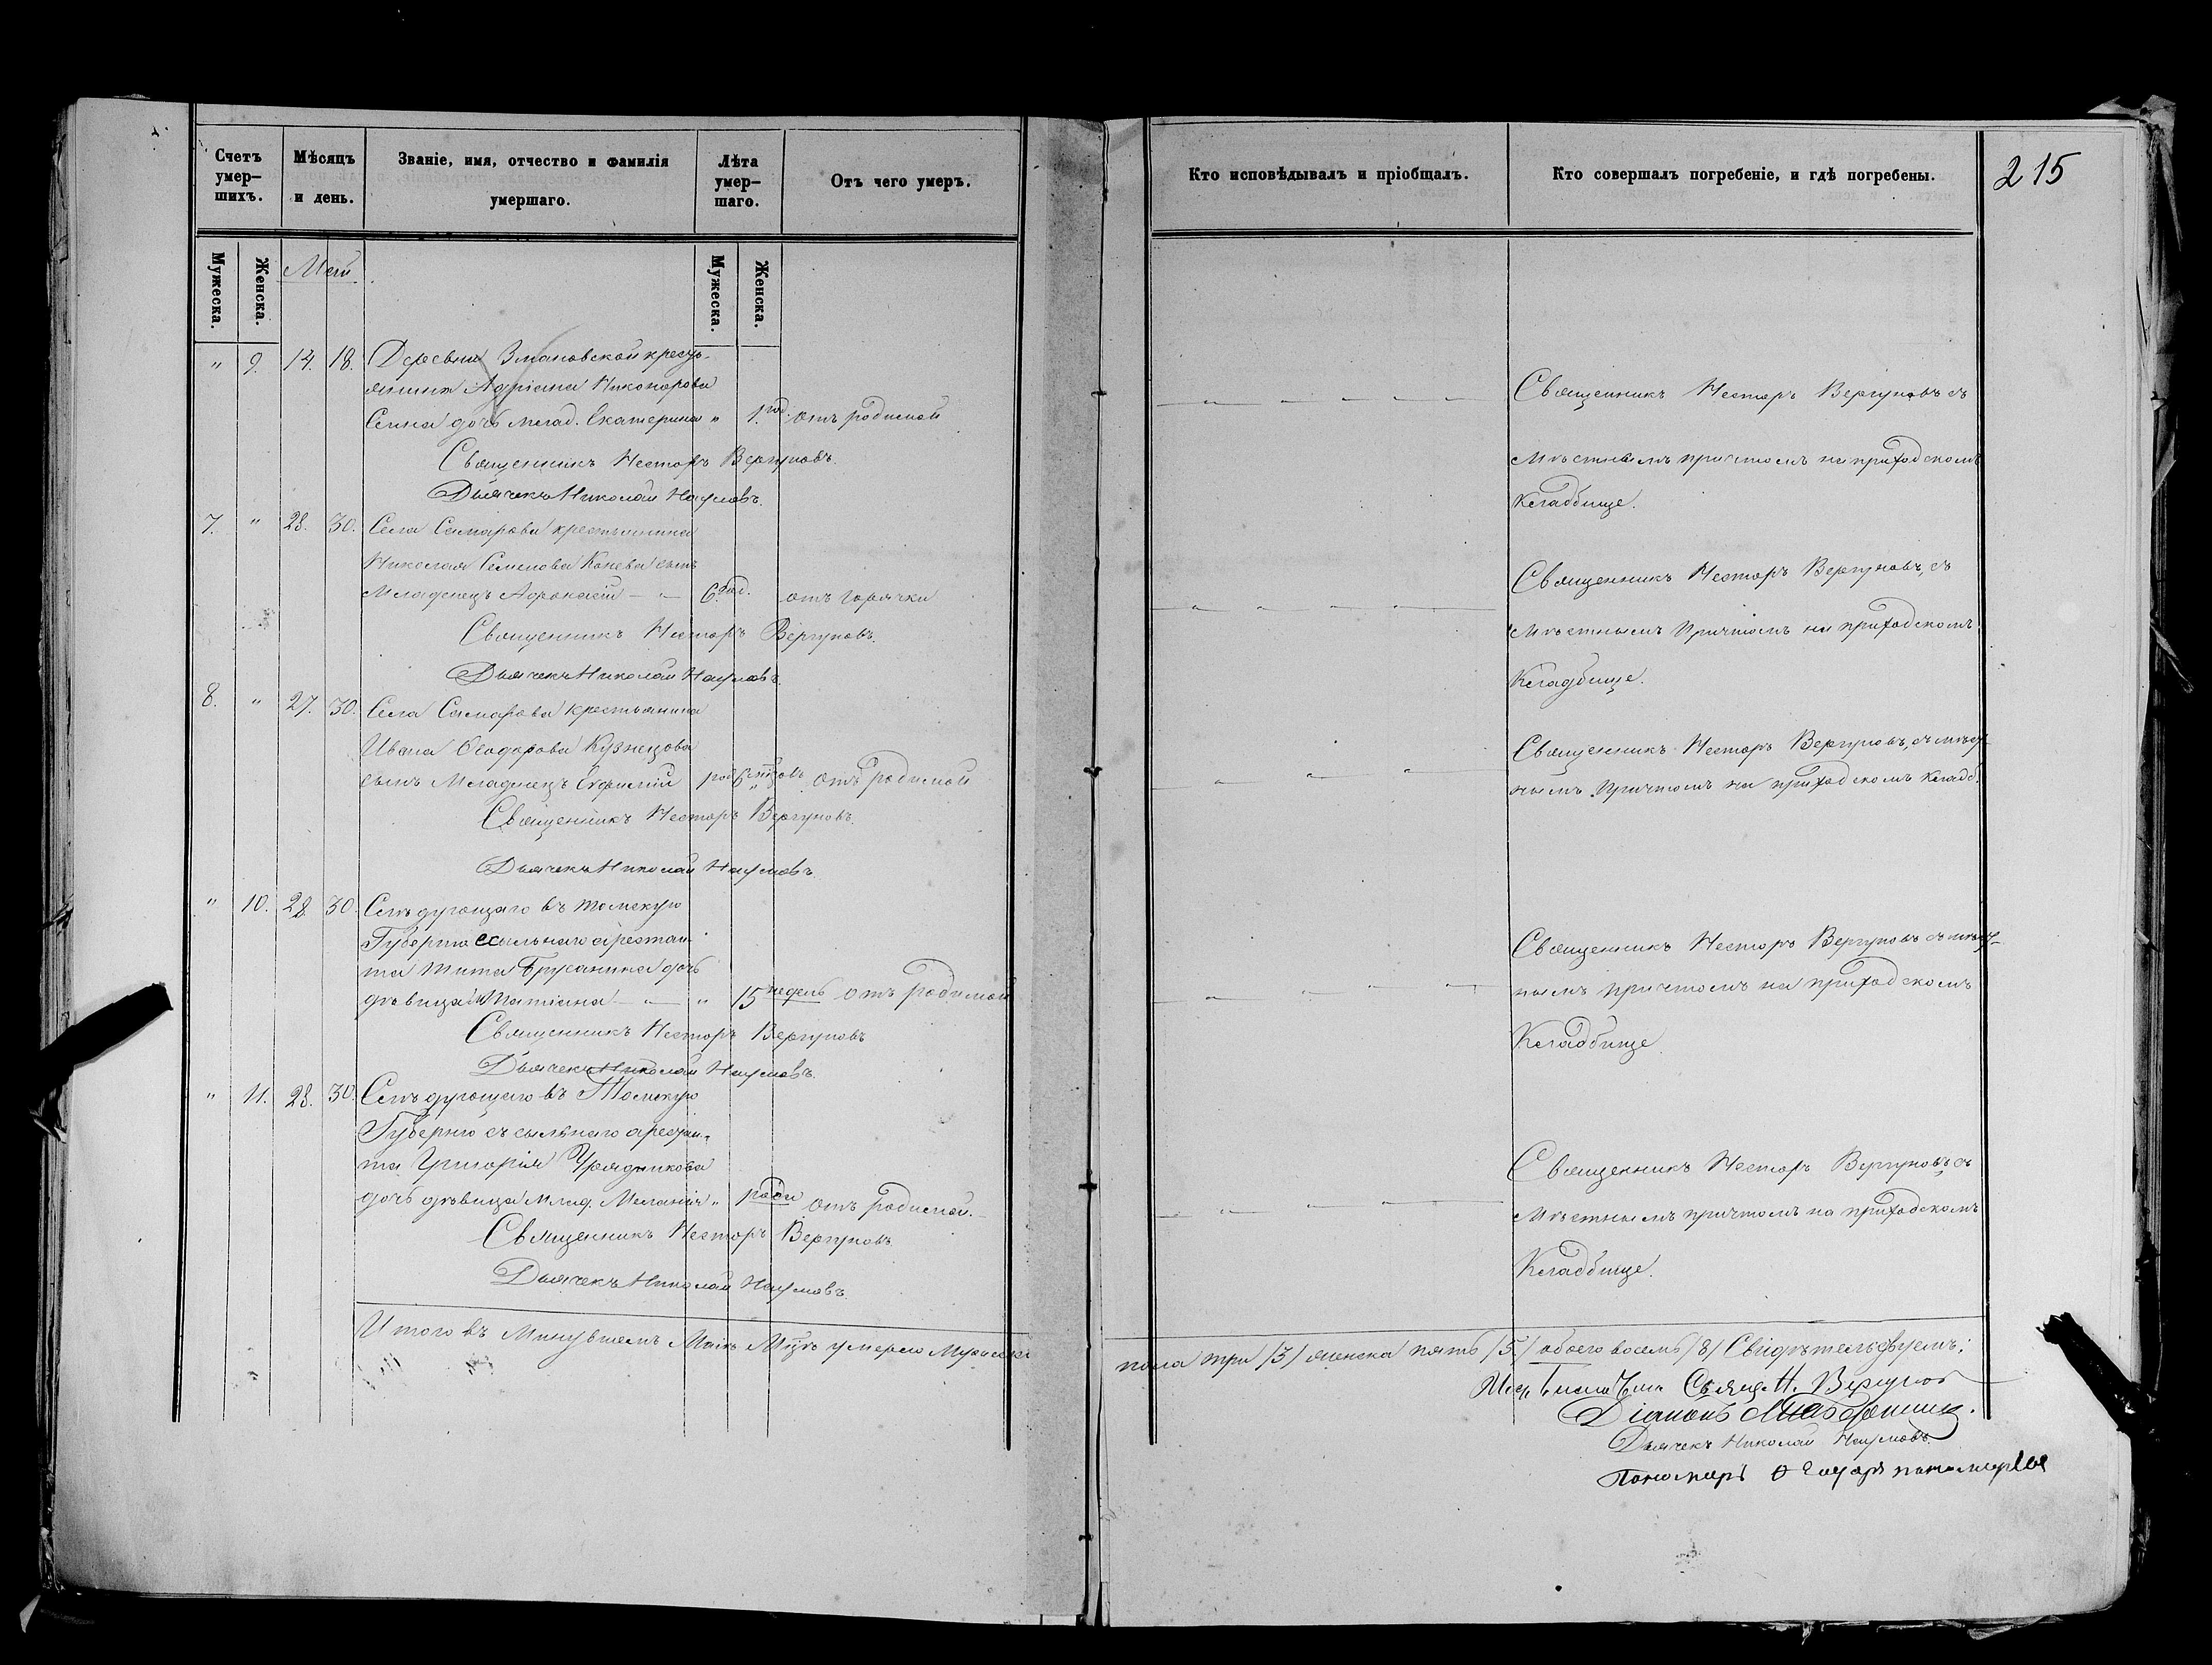 Счетъ умер-
шихъ.
Мѣсяцъ
и день.
Званіе, имя, отчество и фамилія
умершаго.
Лѣта
умер-
шаго.
Отъ чего умеръ.
Кто исповѣдывалъ и пріобщалъ.
Кто совершалъ погребеніе, и гдѣ погребены.
215
Мужеска.
Женска.
Май
Мужеска.
Женска.
" 9. 14. 18. Деревни крестъ-
янина Адріана Никонорова
дочь млад. Екатерина " 1. год. отъ родимой
Священникъ Несторъ Вергуновъ.
Дьячекъ Николай Наумовъ.
Священникъ Несторъ Вергуновъ съ
мѣстнымъ причтомъ на приходскомъ
Кладбище.
7. " 28. 30. Села Самарова крестьянина
Николая Семенова Конева сынъ
Младенецъ Афонасій — " — 6. отъ горячки
Священникъ Несторъ Вергуновъ.
Дьячекъ Николай Наумовъ.
Священникъ Несторъ Вергуновъ, съ
мѣстнымъ причтомъ на приходскомъ
Кладбище.
8. " 27. 30. Села Самарова крестьянина
Ивана Ѳеодорова Кузнецова
сынъ Младенецъ Евфимій отъ родимой
Священникъ Несторъ Вергуновъ.
Дьячекъ Николай Наумовъ
Священникъ Несторъ Вергуновъ, съ мѣст-
нымъ причтомъ на приходскомъ кладб.
" 10. 28. 30. Слѣдующаго въ Томскую
Губернію ссыльнаго арестан-
та Тита Брусанина дочь
дѣвица Татіана — " — " 15 недель отъ родимой
Священникъ Несторъ Вергуновъ
Дьячекъ Николай Наумовъ.
Священникъ Несторъ Вергуновъ съ мѣст-
нымъ причтомъ на приходскомъ
Кладбище.
" 11. 28. 30. Слѣдующаго въ Томскую
Губернію ссыльнаго арестан-
та Григорія Урядникова
дочь дѣвица млад. Меланія " 1 года отъ родимой.
Священникъ Несторъ Вергуновъ
Дьячекъ Николай Наумовъ.
Священникъ Несторъ Вергуновъ съ
мѣстнымъ причтомъ на приходскомъ
Кладбище.
Итого въ Минувшемъ Маіѣ М҃цѣ умерло Мужеска
пола три /3/ женска пять /5/ обоего восемь /8/ Свидѣтельствуемъ:
Свящ. Н. Вергунов
Діаконъ
Дьячекъ Николай Наумовъ.
Пономарь